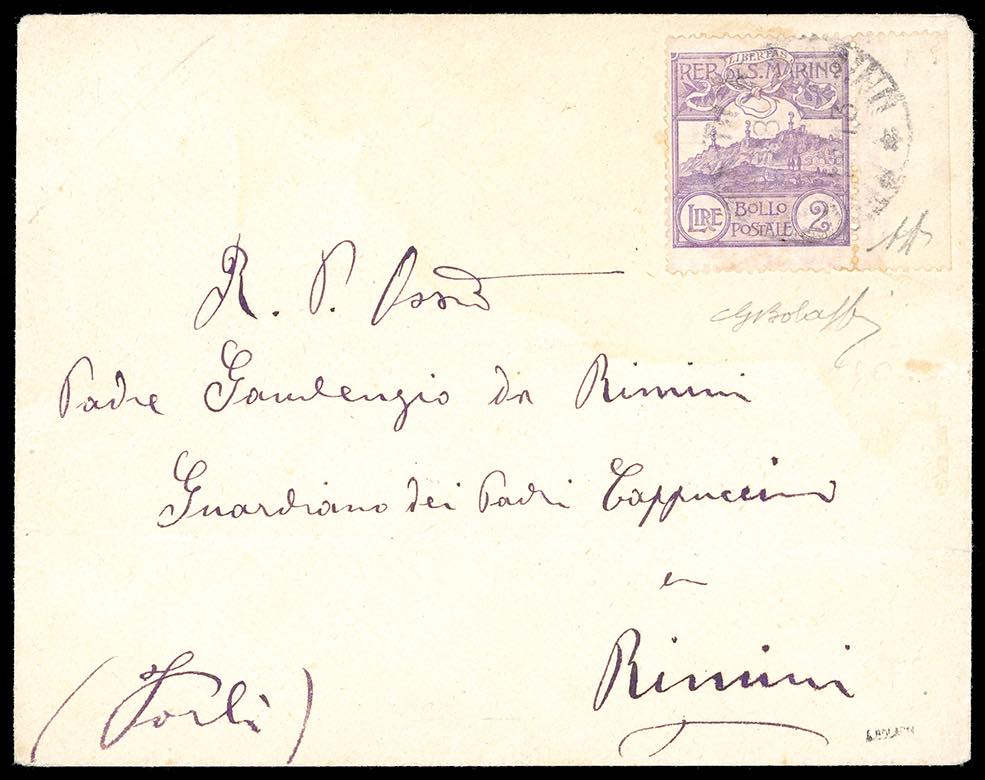 LIBERTAS
REP. DI S. MARINO
LIRE BOLLO POSTALE 2
GBolaffi
R. P. Ossmo
Padre Gaudenzio da Rimini
Guardiano dei Padri Cappuccini
in
Rimini
(Forlì)
A. BOLAFFI